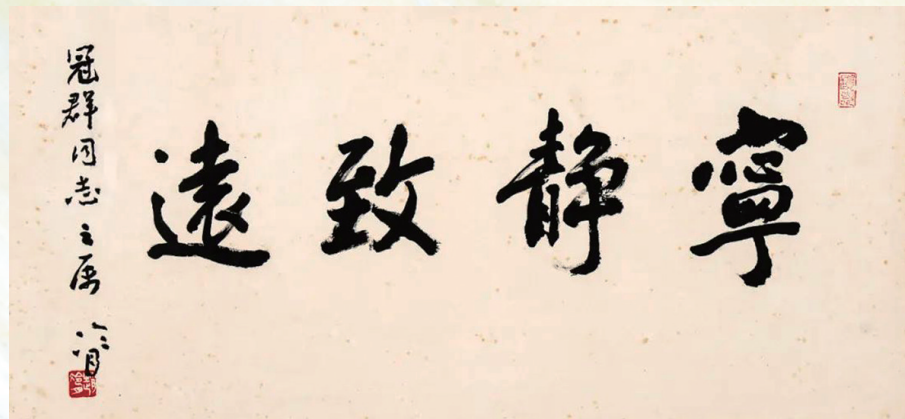 寧靜致遠
冠群同志之屬